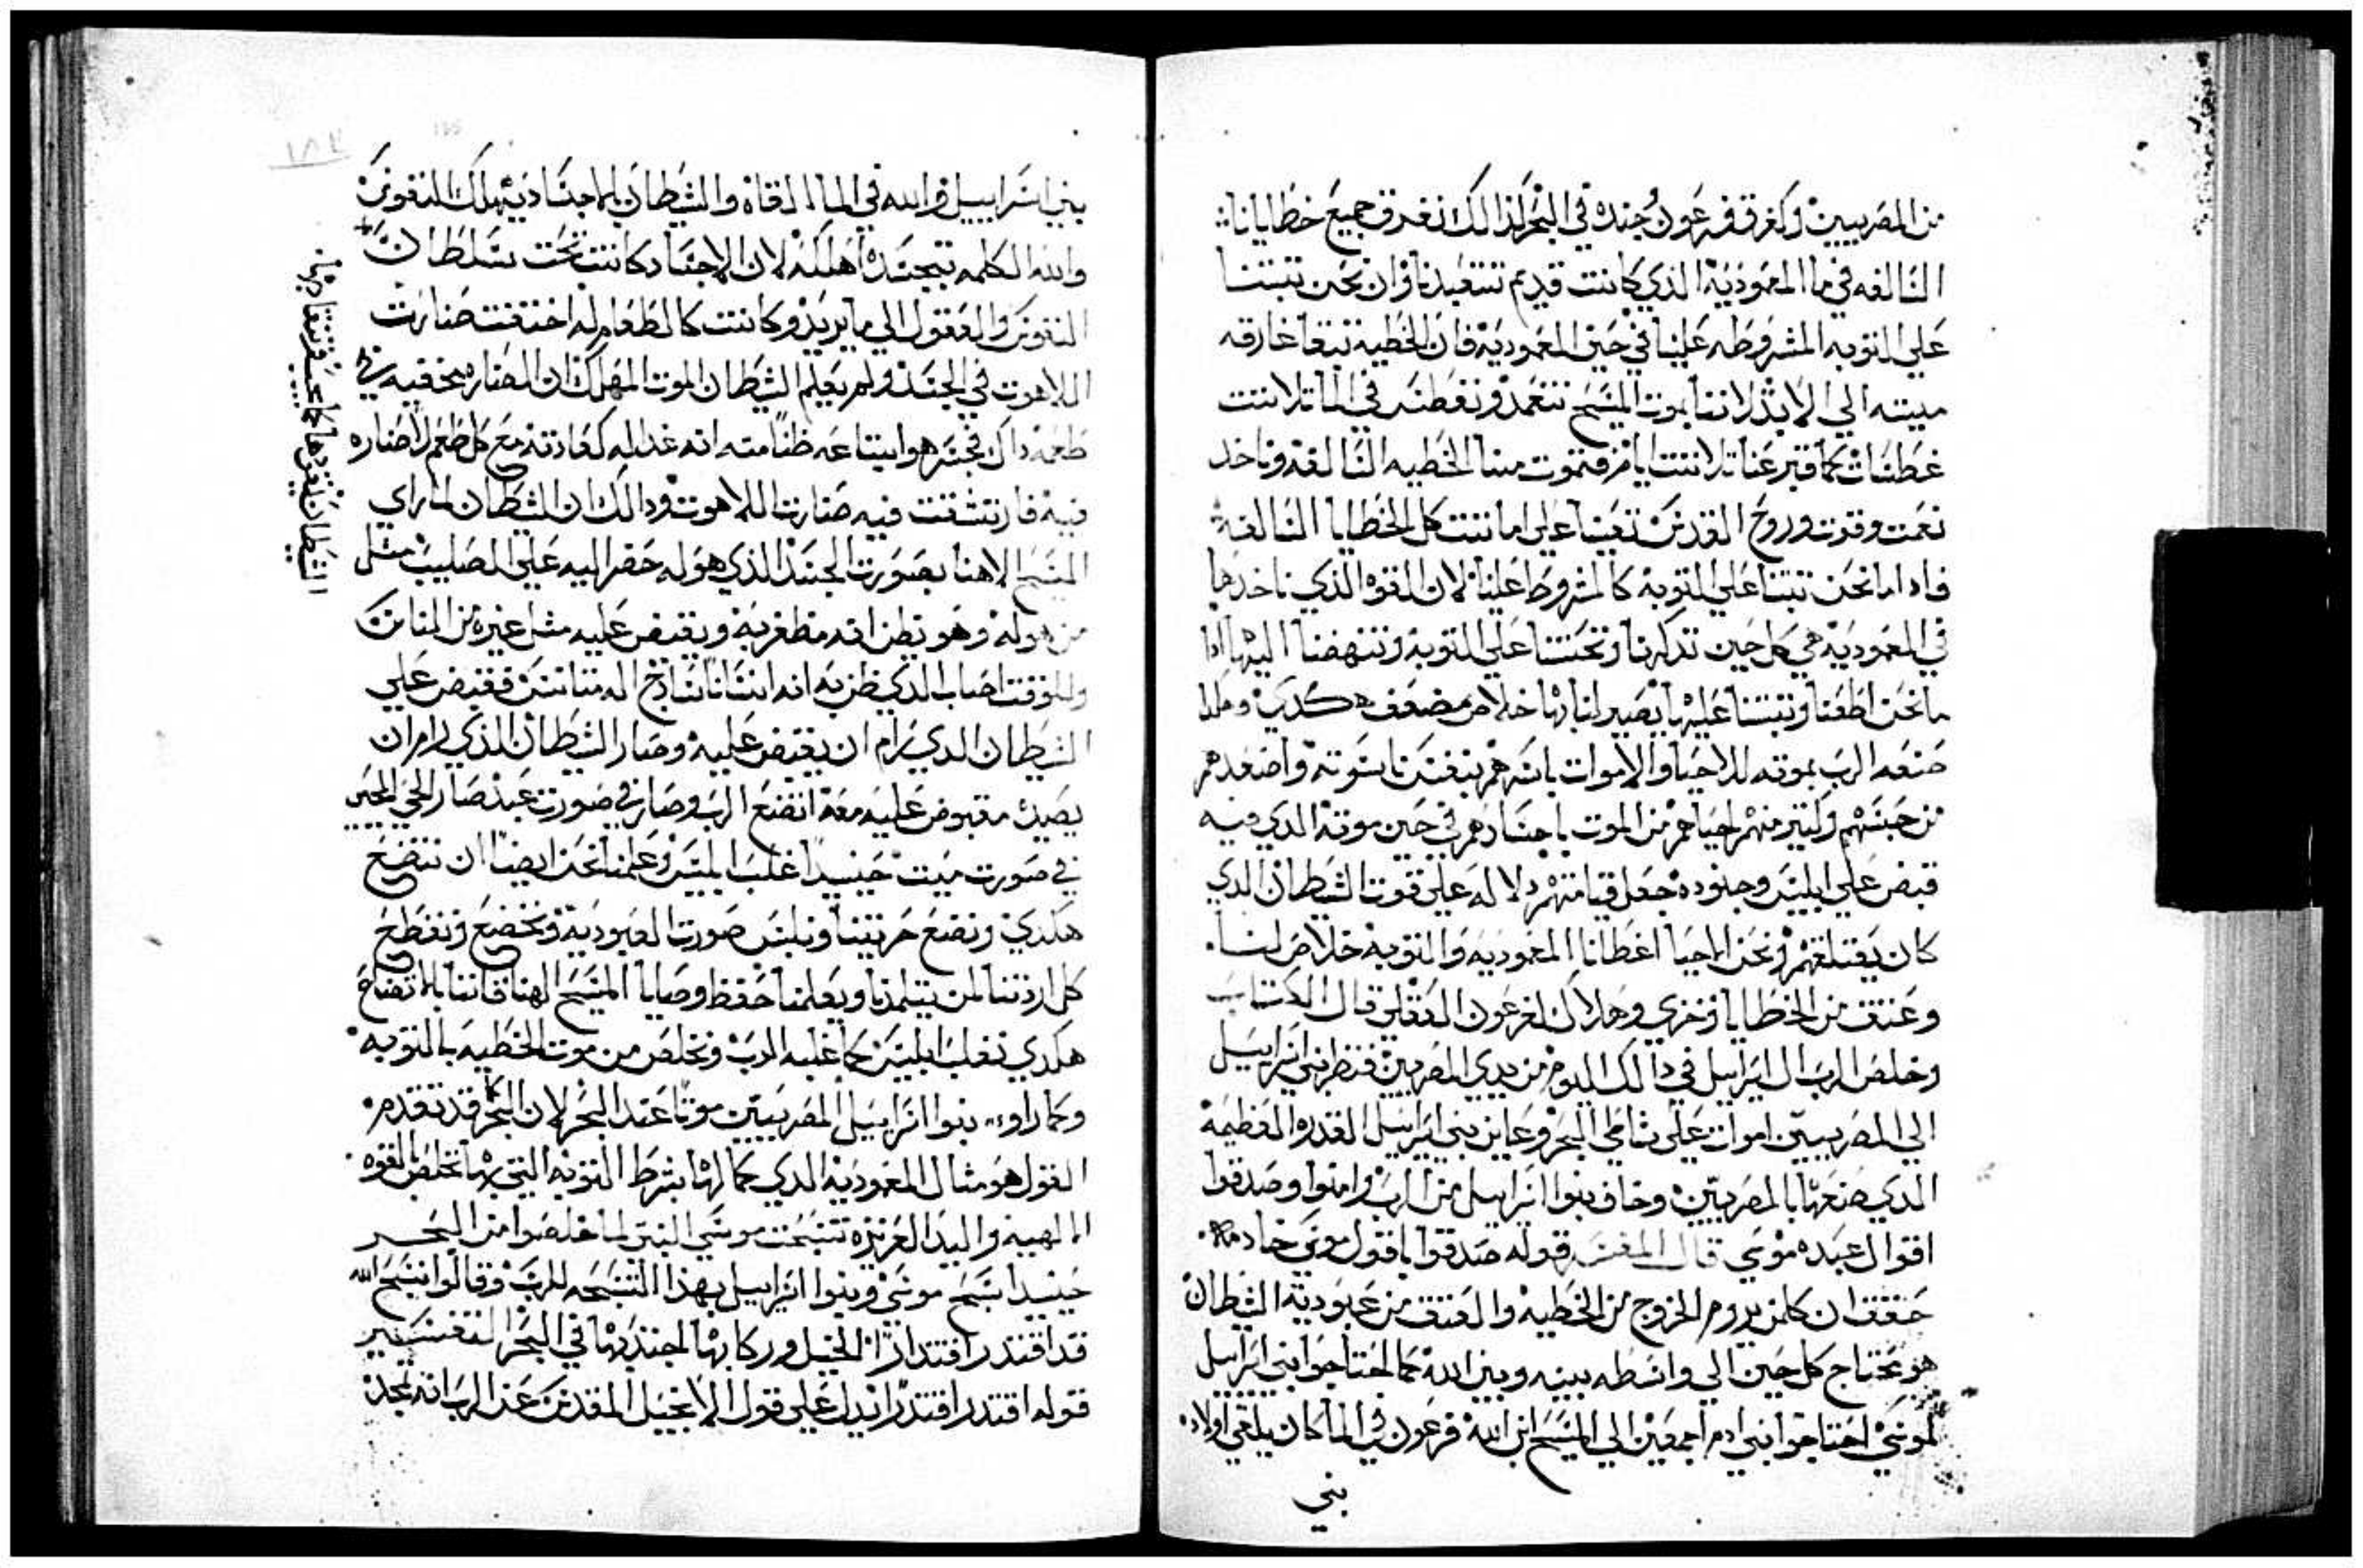 من المصريين وكغرق فرعون جنده في البحر لذالك نغرق جميع خطايانا
السالفه في ما المعموديه الذي كانت قديم تستعبدنا وان نحن تبتنا
علي التوبه المشروطه علينا في حين المعموديه فان الخطيه تبقا غارقه
ميته الي الابد لاننا بموت المسيح نتعمد ونغطس في الما تلاتت
غطسات كما قبر عنا تلاتت ايام فتموت منا الخطيه السالفه وناخد
نعمت وقوت وروح القدس تعيننا علي اماتت كل الخطايا السالفه
فادا ما نحن تبتنا علي التوبه كالمشروط علينا لان القوه الذي ناخدها
في المعموديه هي كل حين تدكرنا وتحتنا علي التوبه وتنهضنا اليها ادا
ما نحن اطعنا وتبتنا عليها يصير لنا بها خلاص مضعف هكدي وهكدا
صنعه الرب بموته للاحيا والاموات باشرهم بنفس ناسوته واصعدهم
من حبسهم وكتير منهم احياهم من الموت باجسادهم في حين موته الدي فيه
قبض علي ابليس وجنوده جعل قيامتهم دلاله علي قوت الشيطان الدي
كان يقتلهم ونحن الاحيا اعطانا المعموديه والتوبه خلاص لنا
وعتق من الخطايا وخزي وهلاك لفرعون العقلي قال الكتاب
وخلص الرب ال اسراييل في دالك اليوم من يدي المصريين فنظر بني اسراييل
الي المصريين اموات علي شاطي البحر وعاين بني اسراييل القدره العظيمه
الدي صنعها بالمصريين وخاف بنوا اسراييل من الرب وامنوا وصدقوا
اقوال عبده موسي قال المفسر قوله صدقوا باقول موسي خادمه
حقق ان كلمن يروم الخروج من الخطيه والعتق من عبوديه الشيطان
هو محتاج كل حين الي واسطه بينه وبين الله كما احتاجوا بني اسراييل
لموسي احتاجوا بني ادم اجمعين الي المسيح ابن الله فرعون في الما كان يلقي اولاد
بني
بني اسراييل والله في الما القاه والشيطان بالاجساد يهلك النفوس
والله الكلمه بتجسده اهلكه لان الاجساد كانت تحت سلطانه
النفوس والعقول الي ما يريد وكانت كالطعام له اختفت صنارت
اللاهوت في الجسد ولم يعلم الشيطان الموت المهلك ان الصناره مخفيه في
طعمه داك فجسر هو ابتلعه ظنا منه انه غدا له كعادته مع كل طعم لا صناره
فيه فارتشقت فيه صنارت اللاهوت ودالك ان الشيطان لما راي
المسيح الاهنا بصورت الجسد الذي هو له حضر اليه علي الصليب مثل
من هو له وهو يظن انه مظفر به ويقبض عليه مثل غيره من الناس
وللوقت اصاب الدي ظن به انه انسانا سادج اله متانس فقبض علي
الشيطان الدي رام ان يقبض عليه وصار الشيطان الذي رام ان
يصيده مقبوض عليه معه اتضع الرب وصار في صورت عبد صار الحي المحيي
في صورت ميت حينيدا غلب ابليس وعلمنا نحن ايضا ان نتضع
هكدي ونضع حريتنا ونلبس صورت العبوديه ونخضع ونقطع
كل ارادتنا لمن يتلمدنا ويعلمنا حفظ وصايا المسيح الهنا فاننا بالاتضاع
هكدي نغلب ابليس كما غلبه الرب ونخلص من موت الخطيه بالتوبه
وكما راوا بنوا اسراييل المصريين موتا عند البحر لان البحر كما قد تقدم
القول هو مثال المعموديه الدي كمالها بشرط التوبه التي بها تخلص بالقوه
الالهيه واليد العزيزه تسبحت موسي النبي لما خلصوا من البحر
حينيدا سبح موسي وبنوا اسراييل بهذا التسبحه للرب وقالوا نسبح الله
قد اقتدر اقتدارا الخيل وركابها اجتدبها في البحر التفسير
قوله اقتدر اقتدارا يدل علي قول الانجيل المقدس عن الرب انه مجد